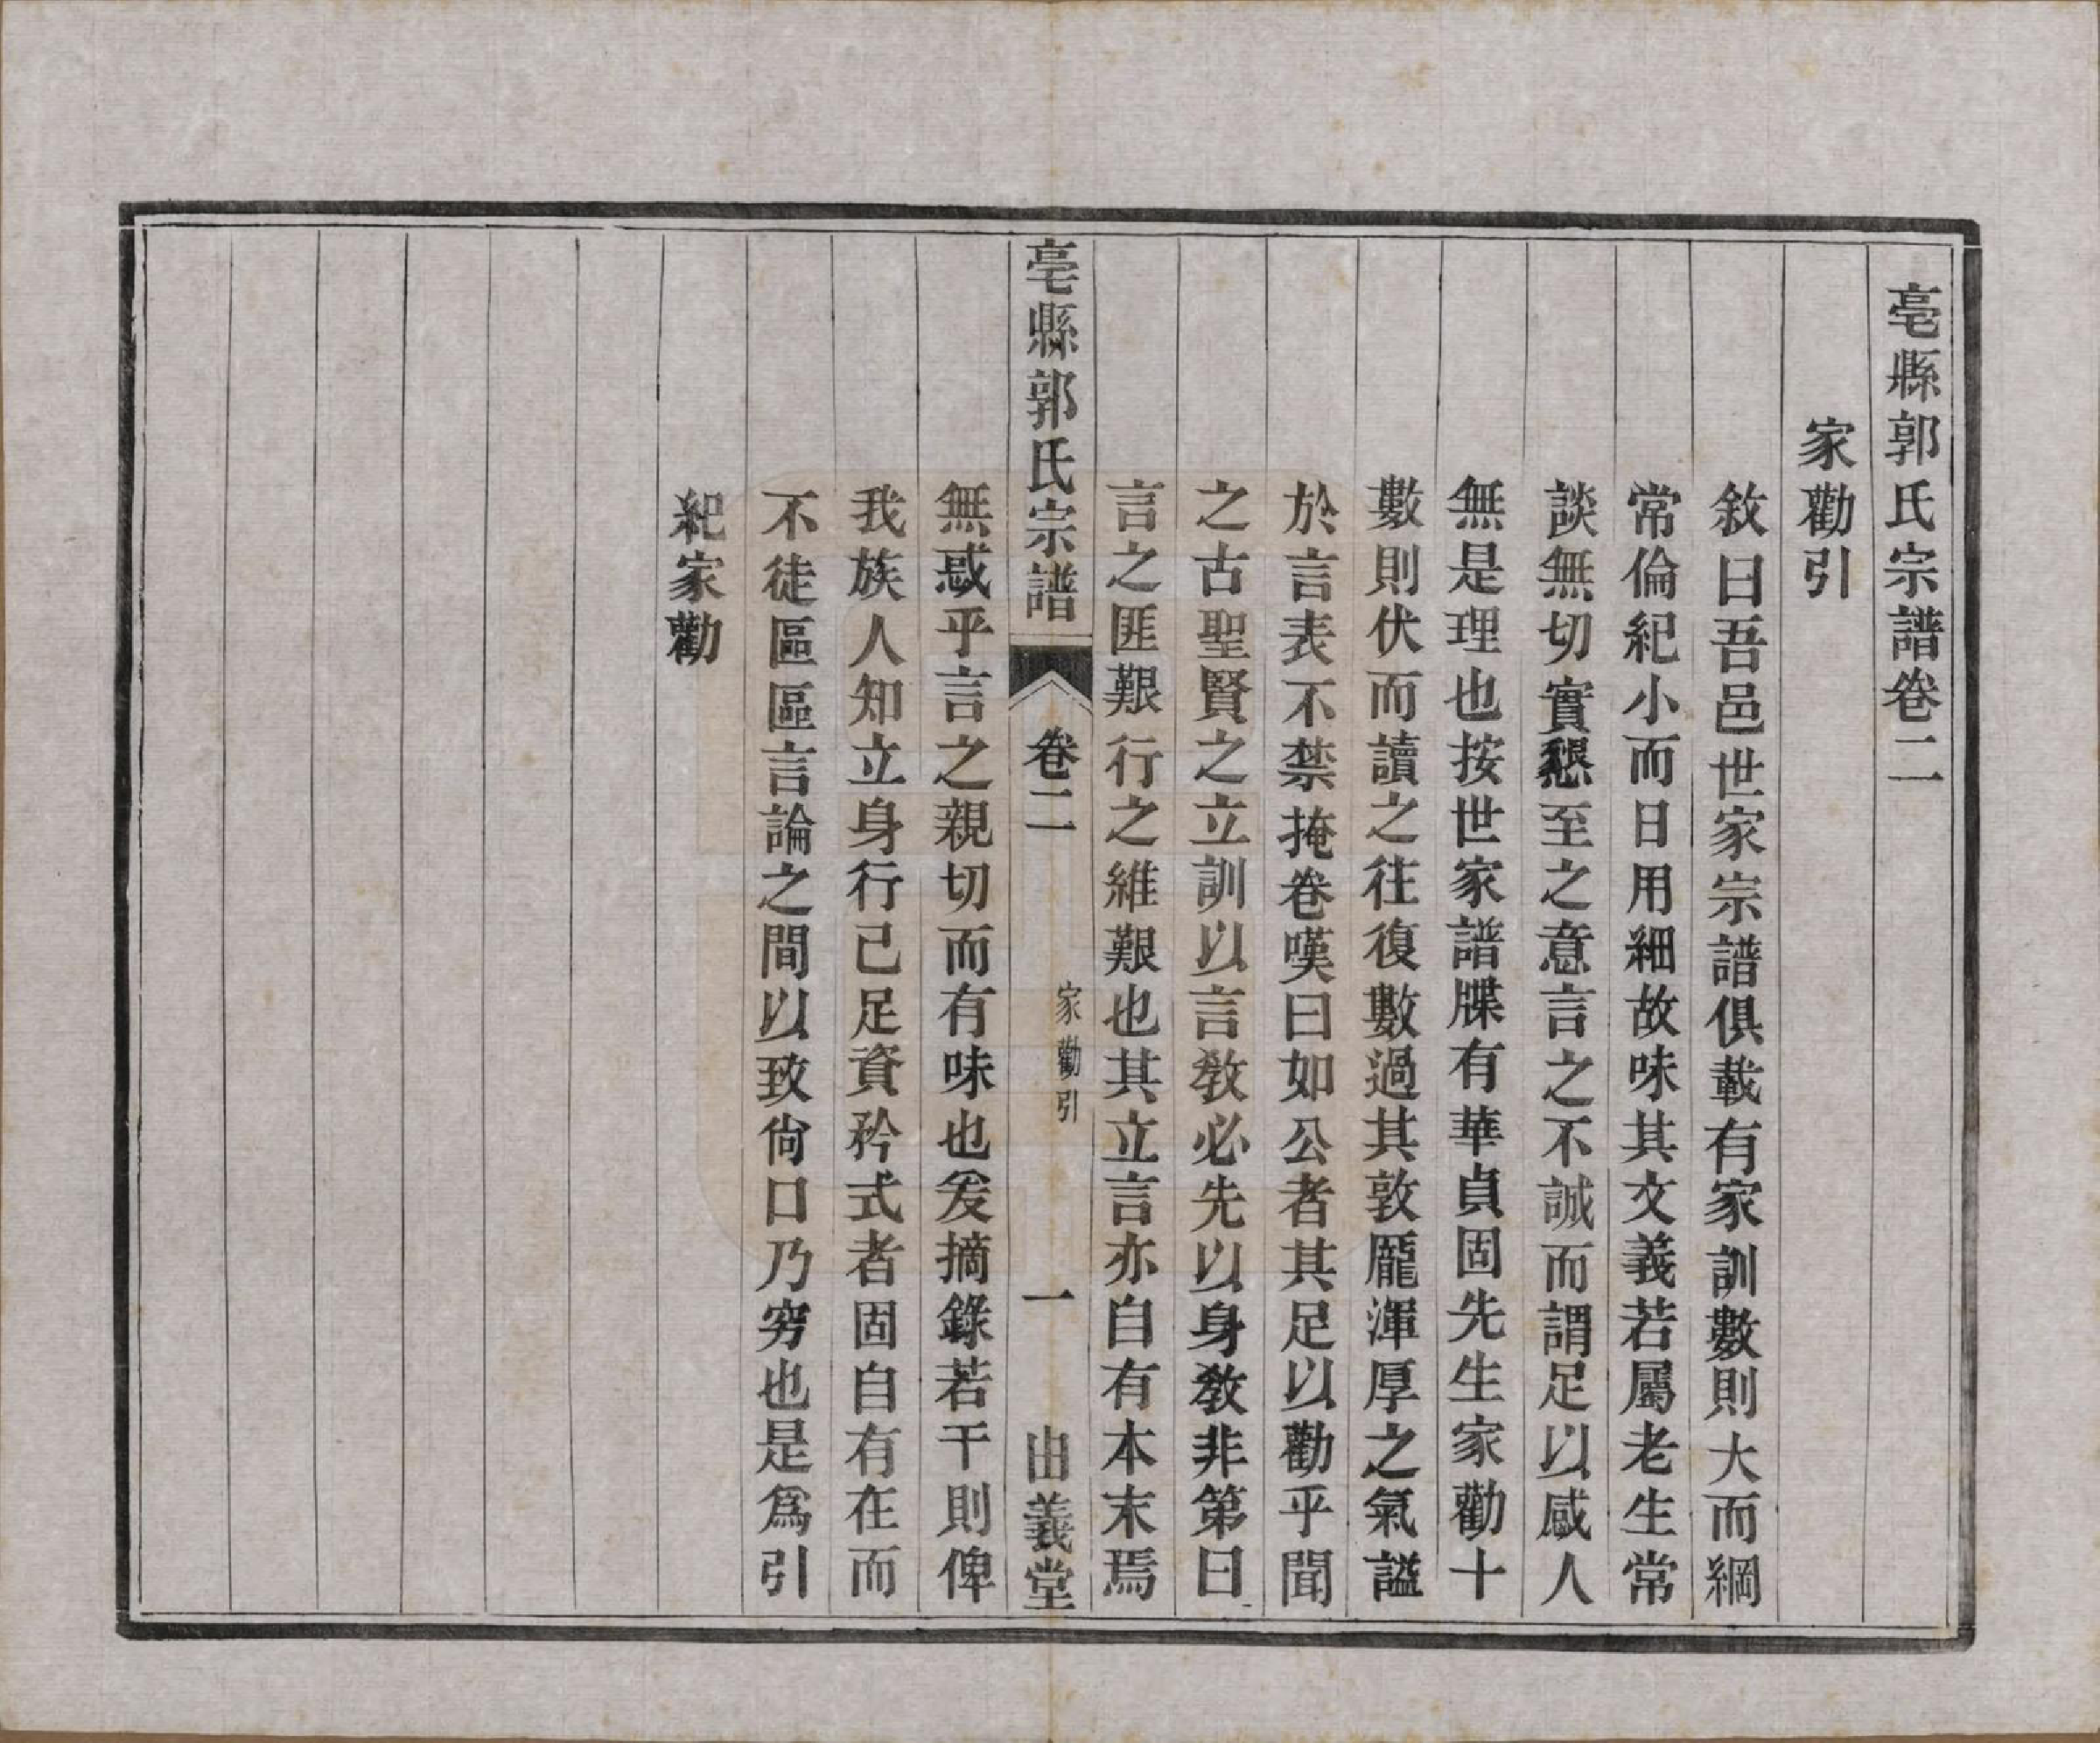 亳縣郭氏宗譜卷二
家勸引
敘曰吾邑世家宗譜俱載有家訓數則大而綱
常倫紀小而日用細故味其文義若屬老生常
談無切實懇至之意言之不誠而謂足以感人
無是理也按世家譜牒有華貞固先生家勸十
數則伏而讀之往復數過其敦龐渾厚之氣謚
於言表不禁掩卷嘆曰如公者其足以勸乎聞
之古聖賢之立訓以言教必先以身教非第曰
言之匪艱行之維艱也其立言亦自有本末焉
亳縣郭氏宗譜 卷二 家勸引 一 由義堂
無惑乎言之親切而有味也爰摘錄若干則俾
我族人知立身行己足資矜式者固自有在而
不徒區區言論之間以致尙口乃窮也是爲引
紀家勸